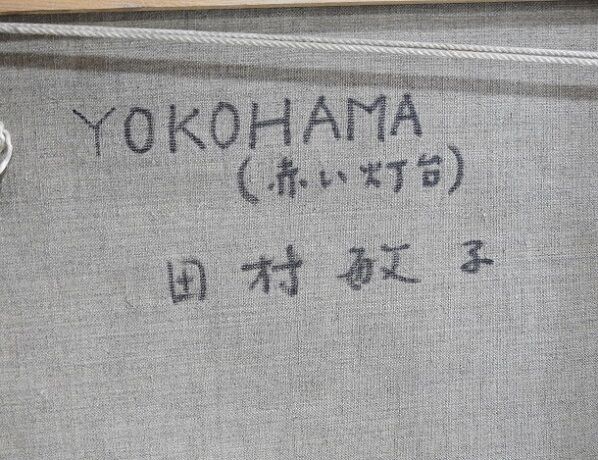 YOKOHAMA
(赤い灯台)
田村敏子